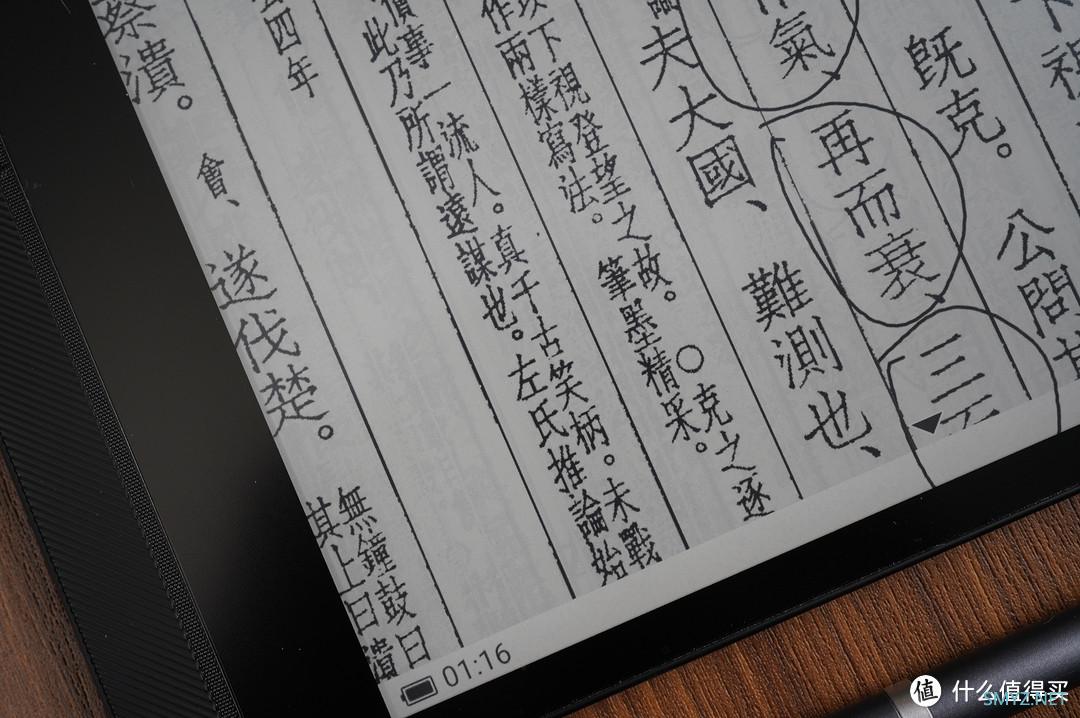 視
既克。公問其
氣、再而衰、三而
夫大國、難測也、
下視登望之故。○克之逐
作兩樣寫法。筆墨精采。
事一流人。真千古笑柄。未戰
此乃所謂遠謀也。左氏推論始
四年
蔡潰。會、遂伐楚。
無鐘鼓曰
其上曰潰
01:16
值 什么值得买
SMYZ.NET